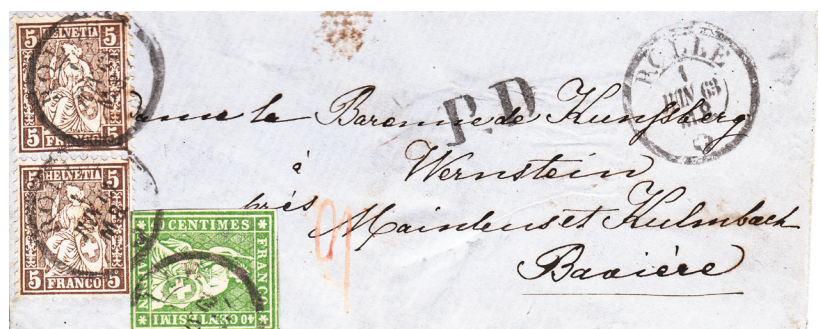 5 HELVETIA 5
5 FRANCO 5
5 HELVETIA 5
5 FRANCO 5
CENTIMES
FRANCO
40 CENTESIMI
P.D
ROLLE
1
JUIN 63
la Baronne de Künssberg
à
Wernstein
près Mainleus et Kulmbach
Bavière